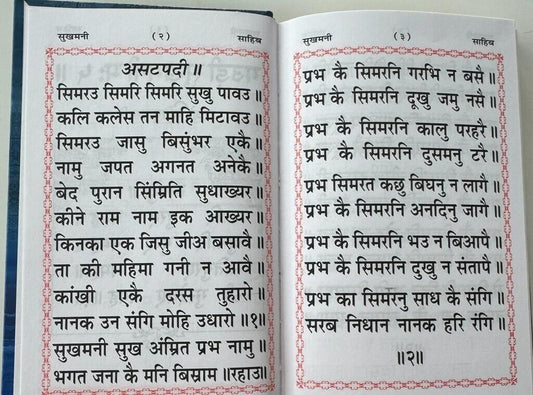 सुखमनी (२) साहिब
असटपदी॥
सिमरउ सिमरि सिमरि सुखु पावउ॥
कलि कलेस तन माहि मिटावउ॥
सिमरउ जासु बिसुंभर एकै॥
नामु जपत अगनत अनेकै॥
बेद पुरान सिंम्रिति सुधाख्यर॥
कीने राम नाम इक आख्यर॥
किनका एक जिसु जीअ बसावै॥
ता की महिमा गनी न आवै॥
कांखी एकै दरस तुहारो॥
नानक उन संगि मोहि उधारो॥१॥
सुखमनी सुख अंम्रित प्रभ नामु॥
भगत जना कै मनि बिस्राम॥रहाउ॥
सुखमनी (३) साहिब
प्रभ कै सिमरनि गरभि न बसै॥
प्रभ कै सिमरनि दूखु जमु नसै॥
प्रभ कै सिमरनि कालु परहरै॥
प्रभ कै सिमरनि दुसमनु टरै॥
प्रभ सिमरत कछु बिघनु न लागै॥
प्रभ कै सिमरनि अनदिनु जागै॥
प्रभ कै सिमरनि भउ न बिआपै॥
प्रभ कै सिमरनि दुखु न संतापै॥
प्रभ का सिमरनु साध कै संगि॥
सरब निधान नानक हरि रंगि॥
॥२॥